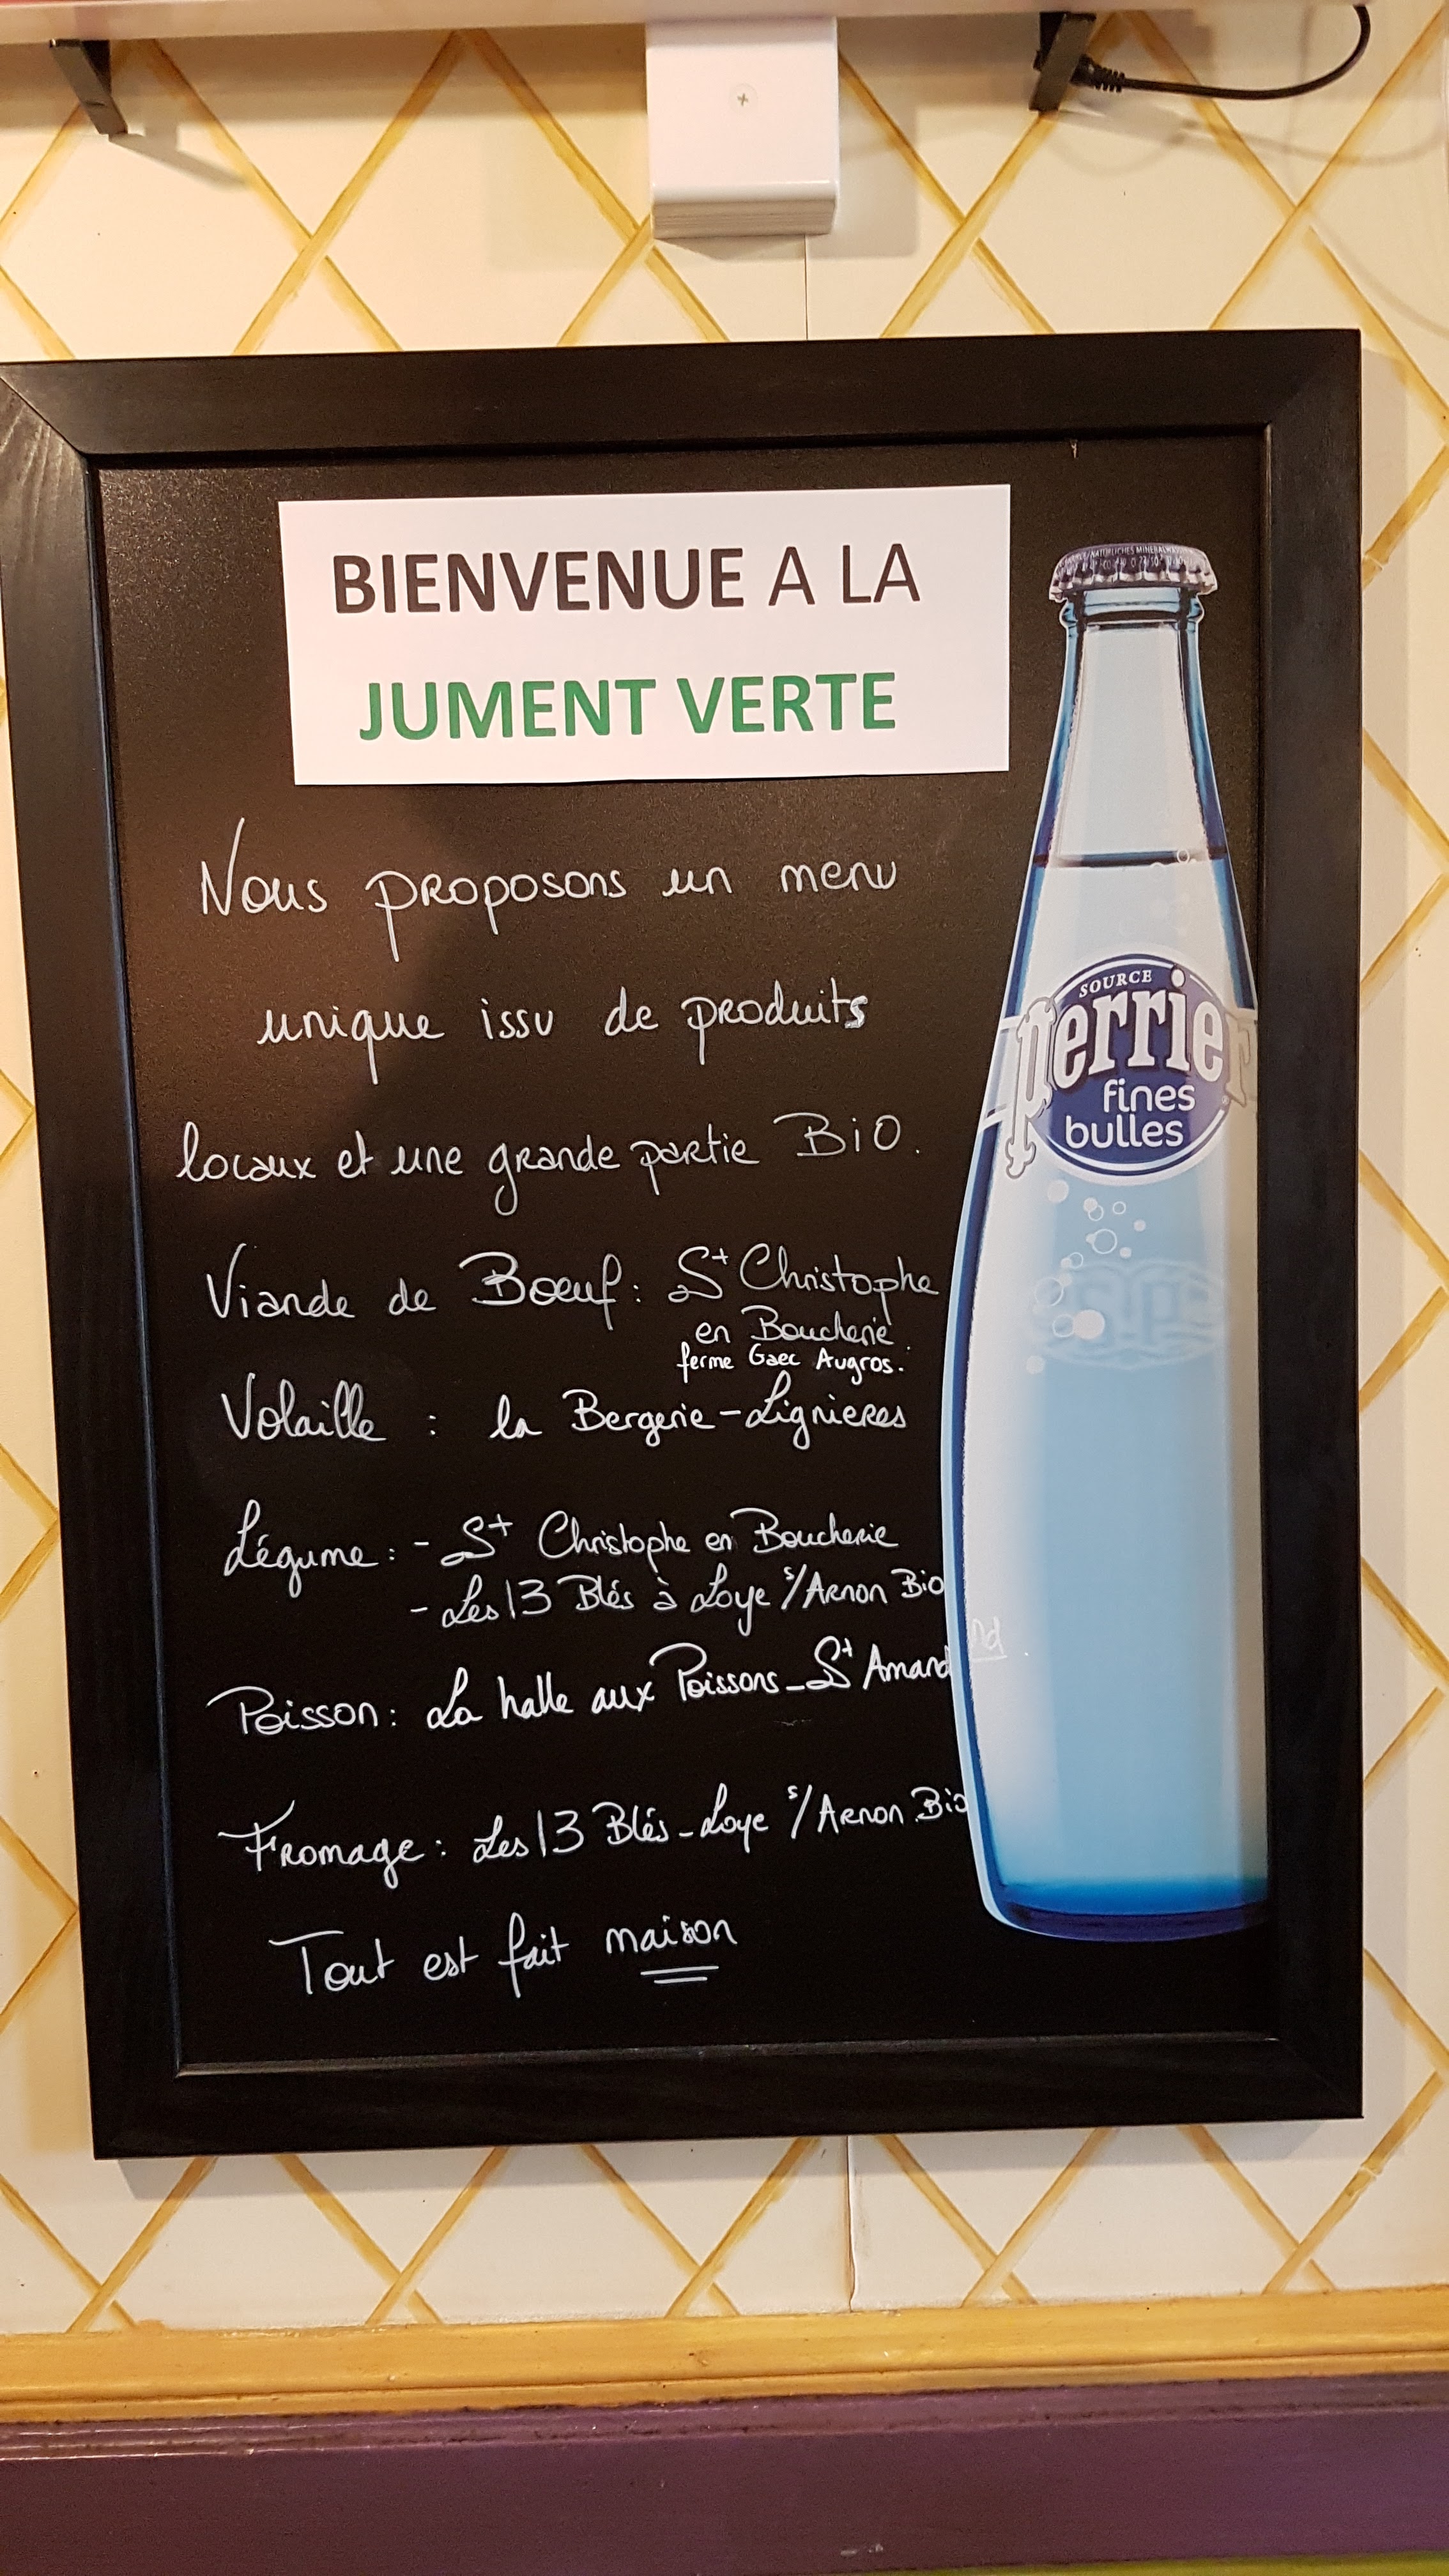 BIENVENUE A LA
JUMENT VERTE
Nous proposons un menu
unique issu de produits
locaux et une grande partie BiO.
Viande de Boeuf: St Christophe
en Boucherie
ferme Gaec Augros.
Volaille : la Bergerie-Lignieres
Légume: - St Christophe en Boucherie
- Les 13 Blés à Loye s/Arnon Bio
Poisson: La halle aux Poissons_St Amand
Fromage: Les 13 Blés_Loye s/Arnon Bio
Tout est fait maison
SOURCE
perrier
fines
bulles